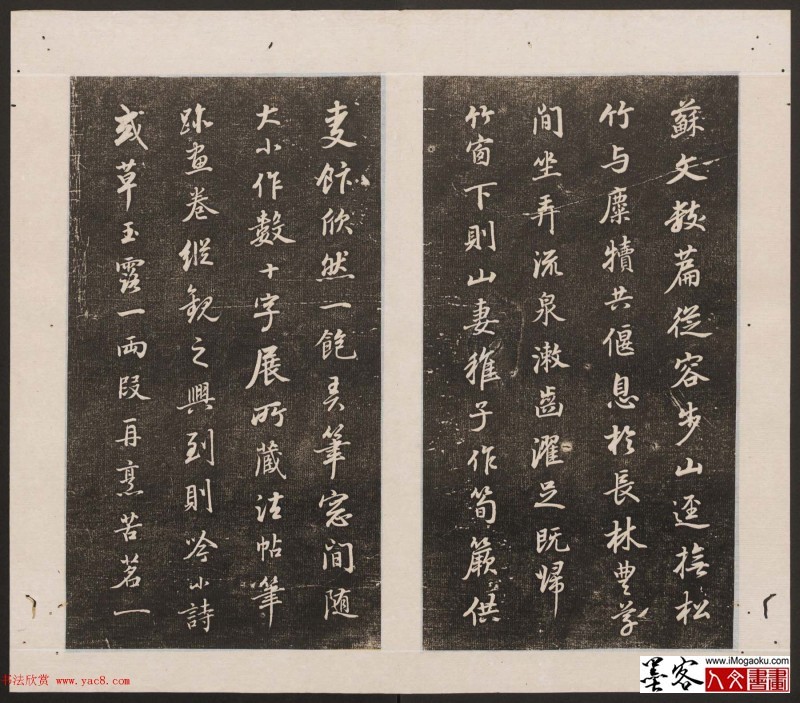 蘇文數篇從容步山逕撫松
竹与麋犢共偃息於長林豐草
間坐弄流泉漱齒濯足既歸
竹窗下則山妻稚子作筍蕨供
麦飰欣然一飽弄筆窓間随
大小作數十字展所藏法帖筆
跡畫卷縱觀之興到則吟小詩
或草玉露一兩段再烹苦茗一
书法欣赏 www.yac8.com
墨客
www.iMogaoku.com
人文書畫